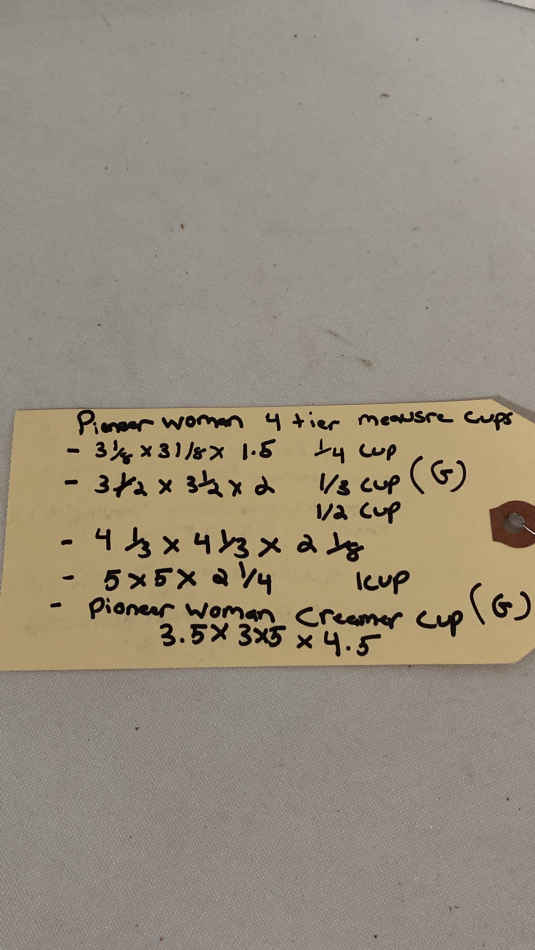 Pioneer Woman 4 tier measure cups
- 3 1/8 x 3 1/8 x 1.5 1/4 cup
- 3 1/2 x 3 1/2 x 2 1/3 cup (G)
1/2 cup
- 4 1/3 x 4 1/3 x 2 1/8
- 5 x 5 x 2 1/4 1 cup
- Pioneer Woman Creamer cup (G)
3.5 x 3x5 x 4.5